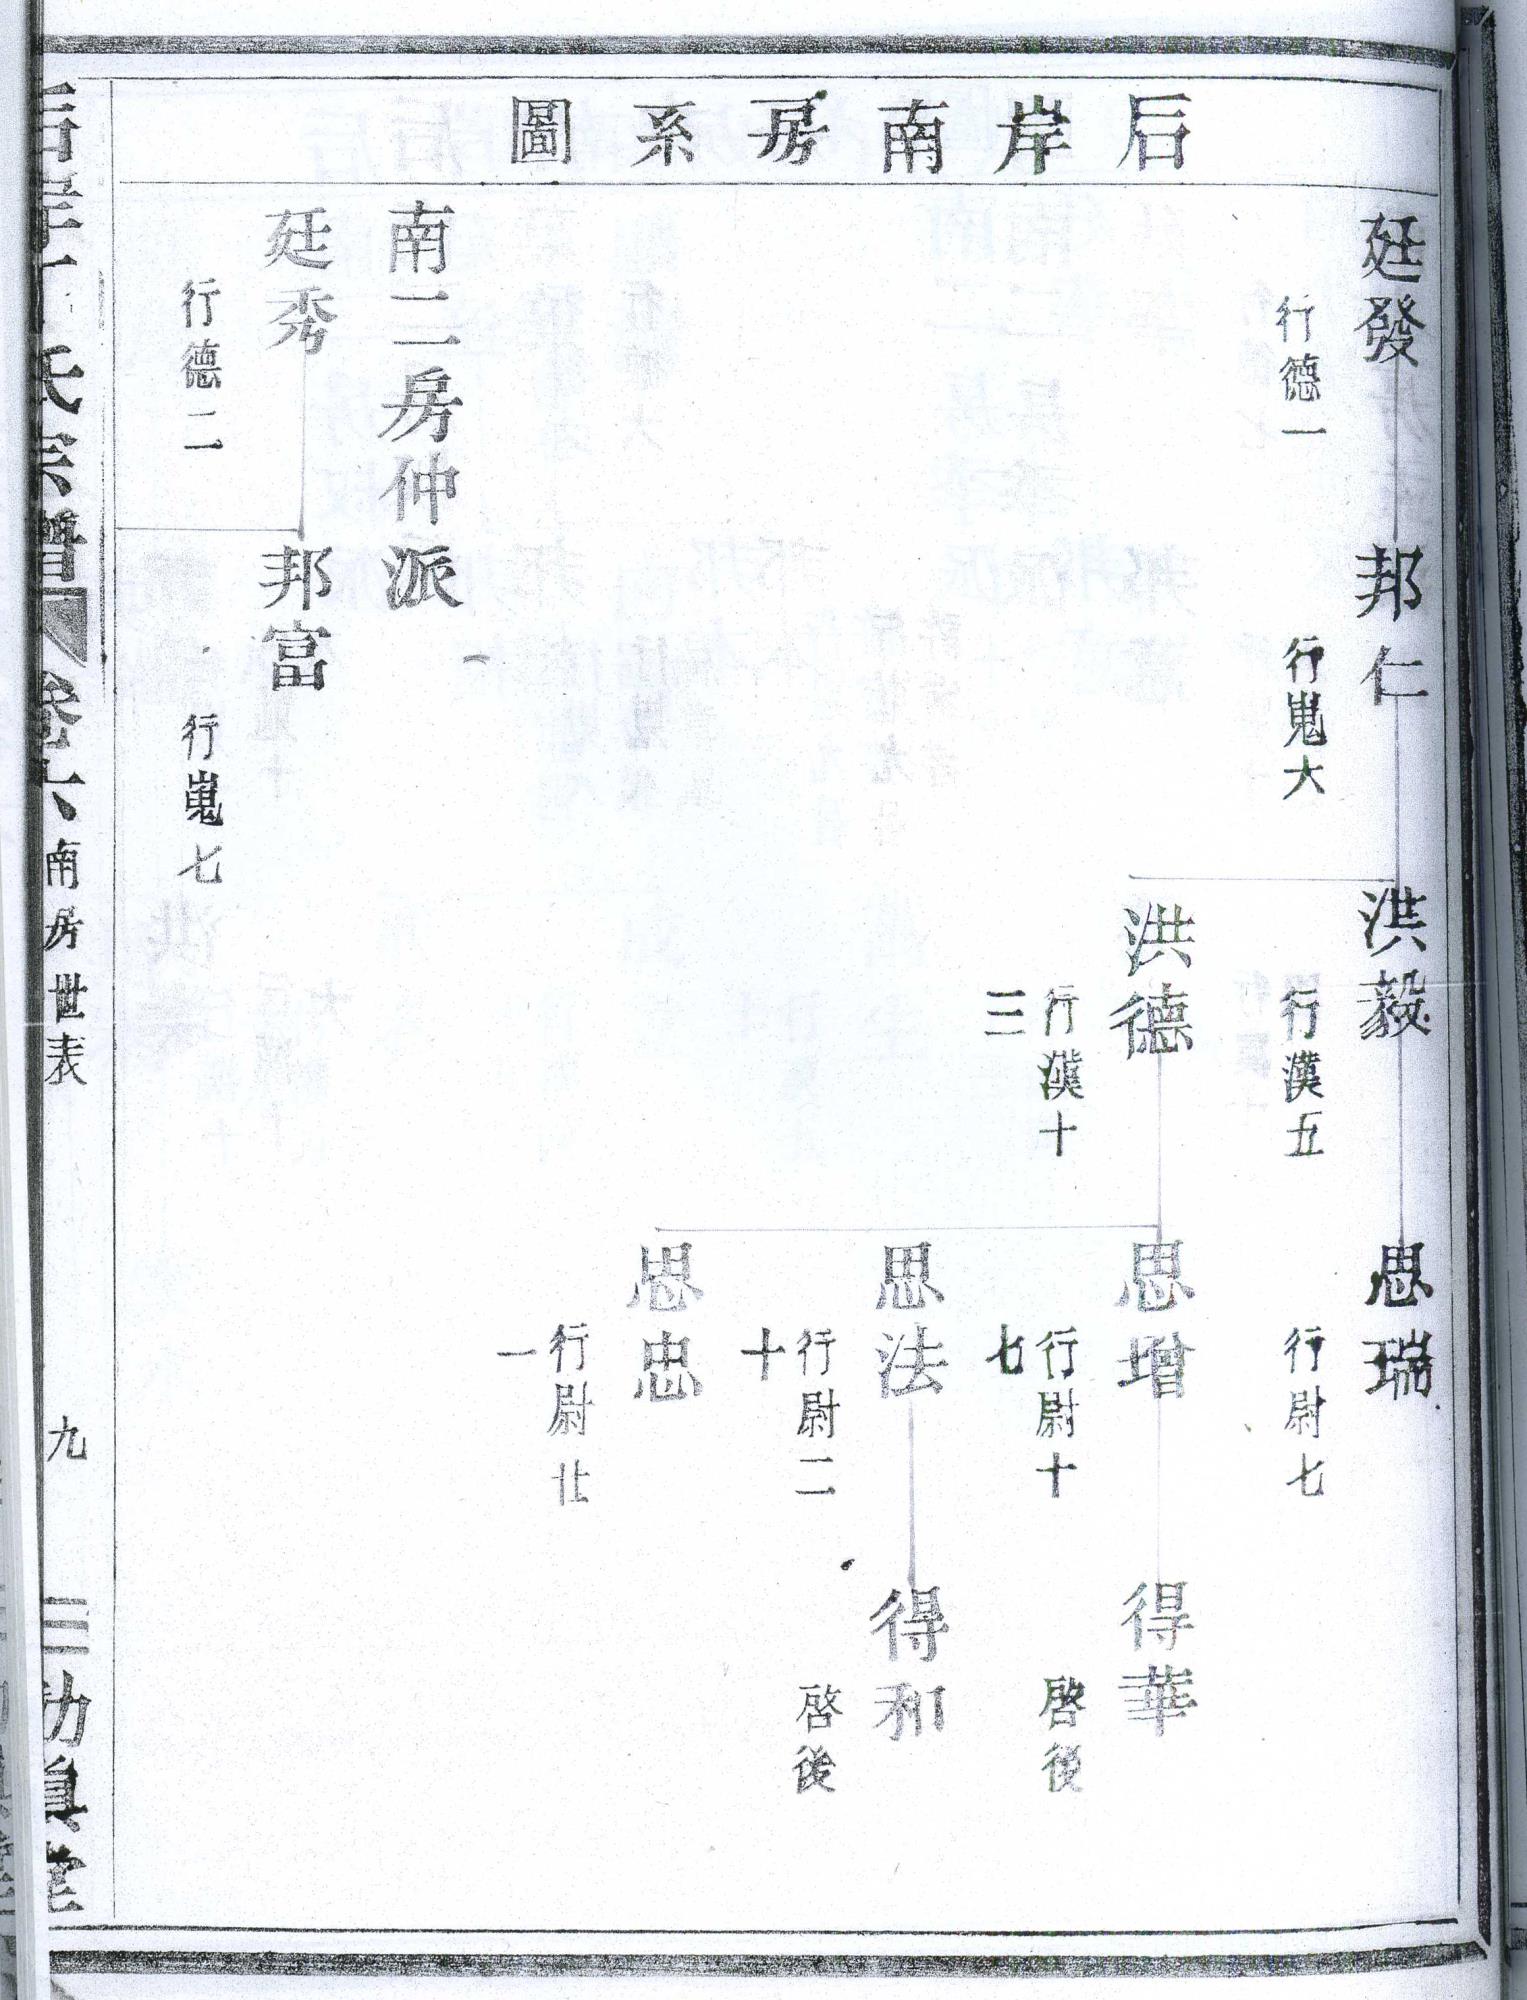 后岸南房系圖
廷發
行德一
邦仁
行嵬大
洪毅
行漢五
思瑞
行尉七
洪德
行漢十
三
思增
行尉十
七
得華
啓後
思法
行尉二
十
得和
啓後
思忠
行尉廿
一
南二房仲派
廷秀
行德二
邦富
行嵬七
氏宗譜
卷六
南房世表
九
三